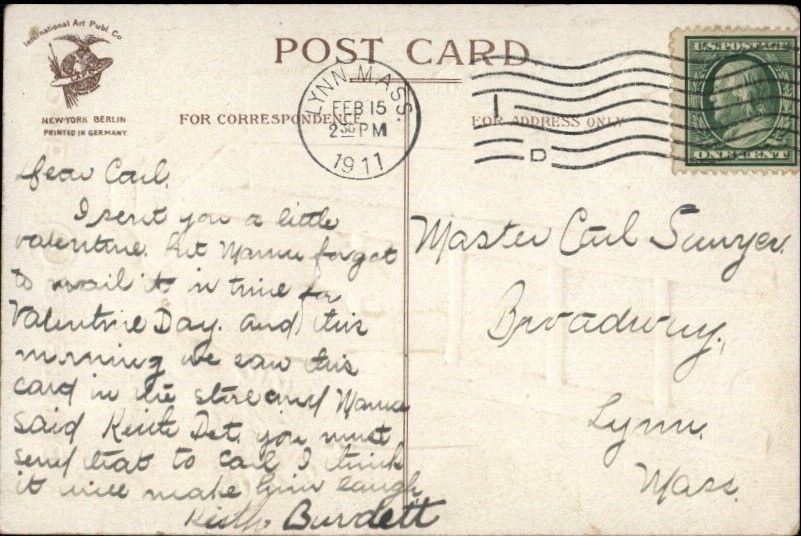 International Art Publ. Co
NEW-YORK BERLIN
PRINTED IN GERMANY.
POST CARD
FOR CORRESPONDENCE
FOR ADDRESS ONLY
LYNN, MASS.
FEB 15
2 30 PM
1911
1
D
U.S. POSTAGE
ONE CENT
Dear Carl.
I sent you a little
valentine. but Mama forgot
to mail it in time for
Valentine Day. and this
morning we saw this
card in the store and Mama
said Keith you must
send that to Carl I think
it will make him laugh
Keith Burdett
Master Carl Sawyer.
Broadway,
Lynn.
Mass.